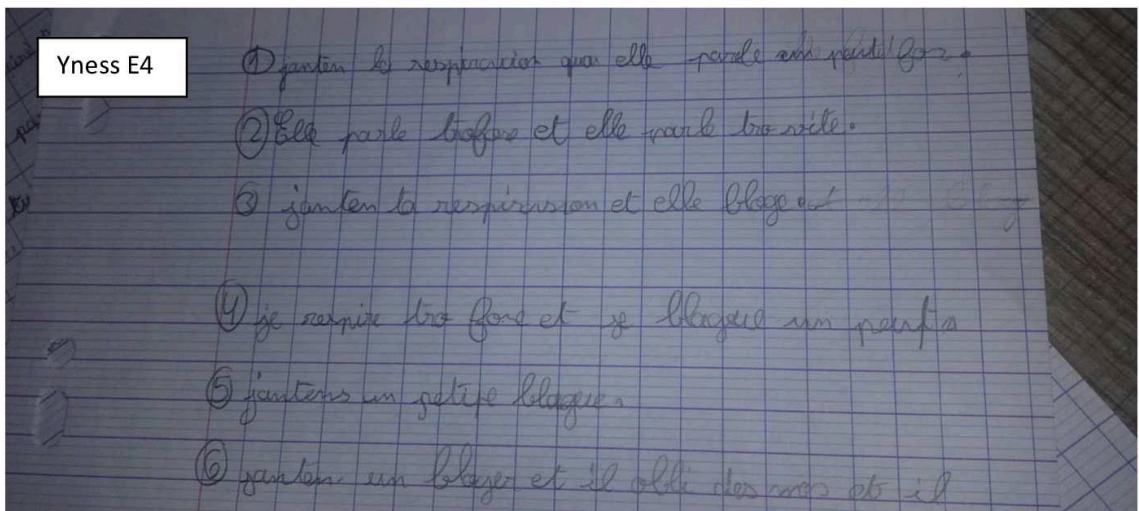 Yness E4
① janten la respiracion quan elle parle un peut for.
② Elle parle trofore et elle parle tro vite.
③ janten la respirasion et elle bloge
④ je respire tro fore et je blogue un peut
⑤ jantens un petite blague.
⑥ janten un bloger et il obli des mos et il